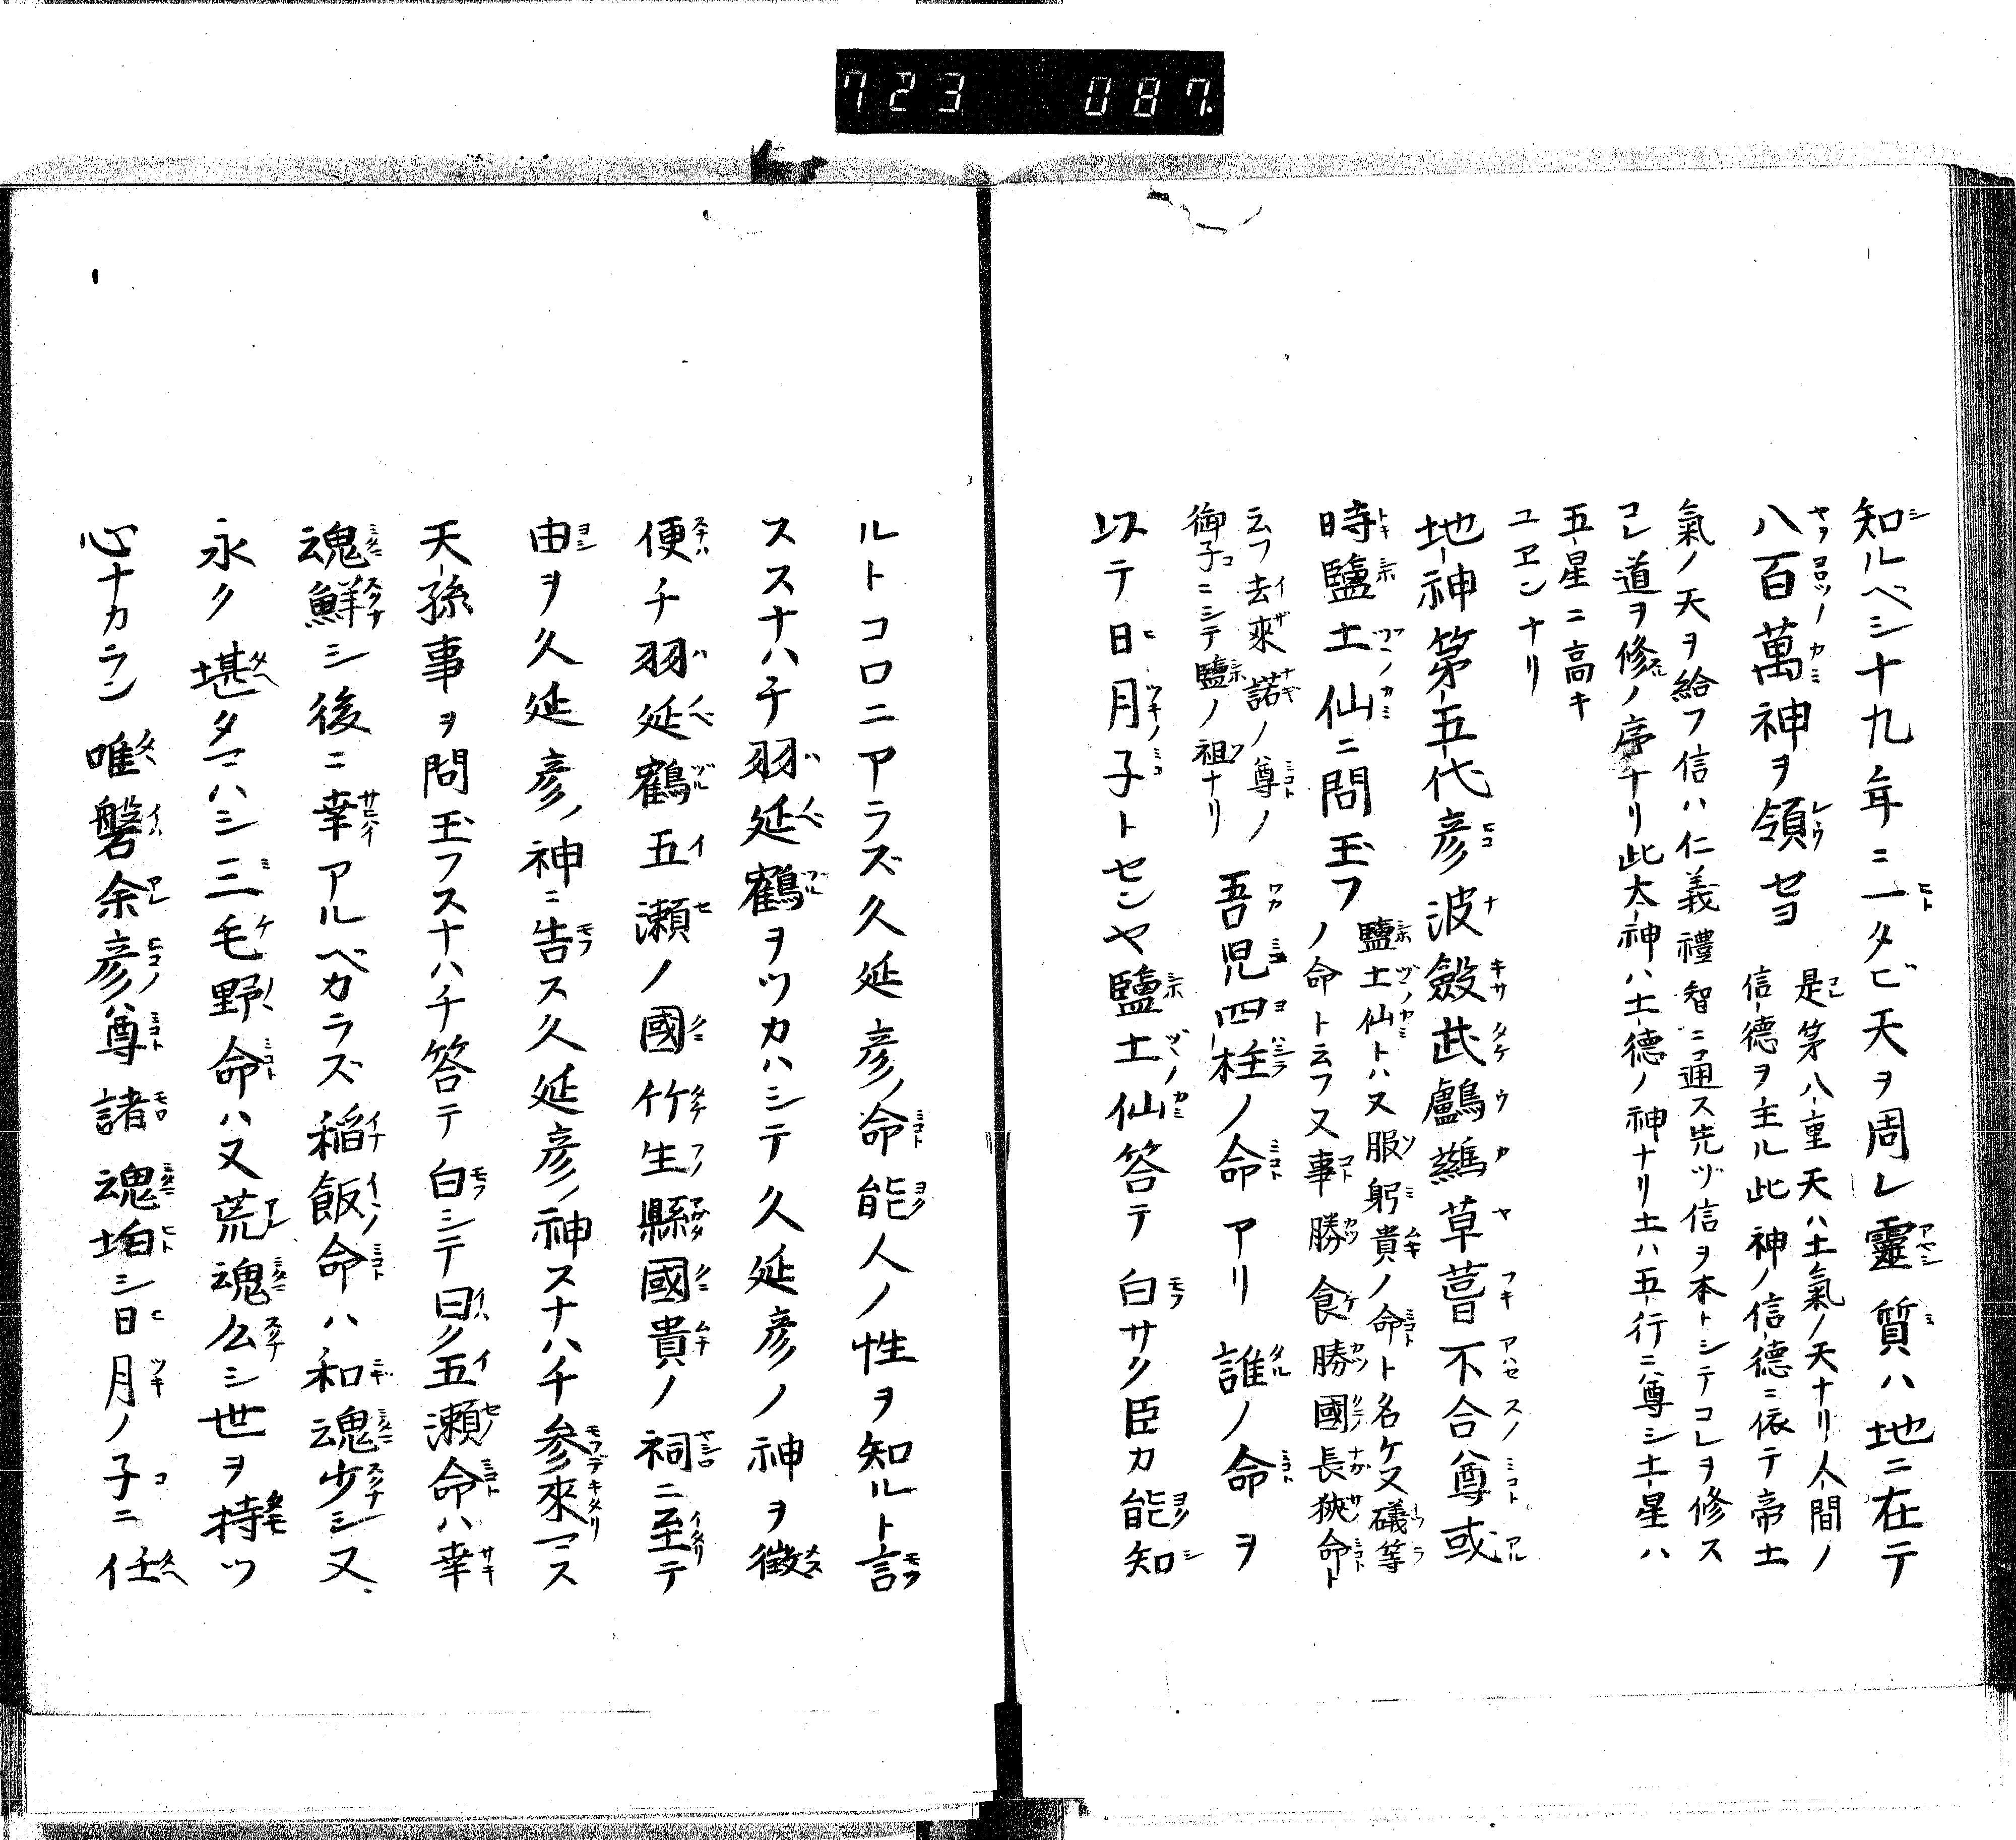 723 087
知ルベシ十九年ニ一タビ天ヲ周レ靈質ハ地ニ在テ
八百萬神ヲ領セヨ
是第八重天ハ土氣ノ天ナリ人間ノ
信德ヲ主ル此神ノ信德ニ依テ帝土
氣ノ天ヲ給フ信ハ仁義禮智ニ通ス先ヅ信ヲ本トシテコレヲ修ス
コレ道ヲ修ノ序ナリ此太神ハ土德ノ神ナリ土ハ五行ニ尊シ土星ハ
五星ニ高キ
ユヱンナリ
地神第五代彦波瀲武鸕鷀草葺不合尊或
時鹽土仙ニ問玉フ
鹽土仙トハ又服躬貴ノ命ト名ケ又礒等
ノ命ト云フ又事勝食勝國長狹命ト
云フ去來諾ノ尊ノ
御子ニシテ鹽ノ祖ナリ
吾児四柱ノ命アリ誰ノ命ヲ
以テ日月子トセンヤ鹽土仙答テ白サク臣カ能知
ルトコロニアラズ久延彦ノ命能人ノ性ヲ知ルト言
ススナハチ羽延鶴ヲツカハシテ久延彦ノ神ヲ徴
便チ羽延鶴五瀬ノ國竹生縣國貴ノ祠ニ至テ
由ヲ久延彦ノ神ニ告ス久延彦ノ神スナハチ参來マス
天孫事ヲ問玉フスナハチ答テ白シテ曰ク五瀬命ハ幸
魂鮮シ後ニ幸アルベカラズ稲飯命ハ和魂少シ又
永ク堪タマハシ三毛野命ハ又荒魂幺シ世ヲ持ツ
心ナカラン唯磐余彦尊諸魂均シ日月ノ子ニ任